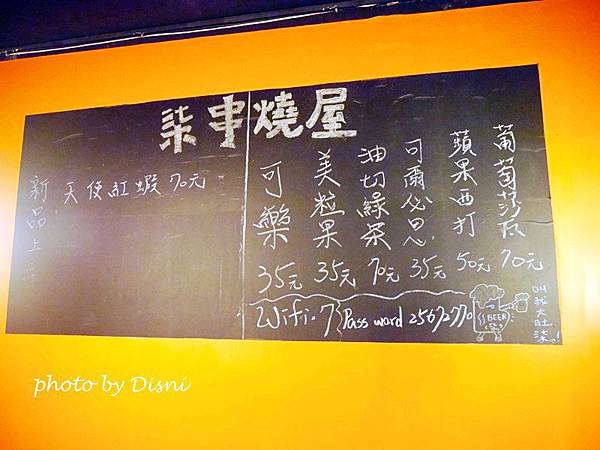 柒串燒屋
新品上
天使紅蝦 70元
葡萄莎瓦 70元
蘋果西打 50元
可爾必思 35元
油切綠茶 70元
美粒果 35元
可樂 35元
Wifi.7 Pass word 25692770
BEER
叫我大肚柒!
photo by Disni